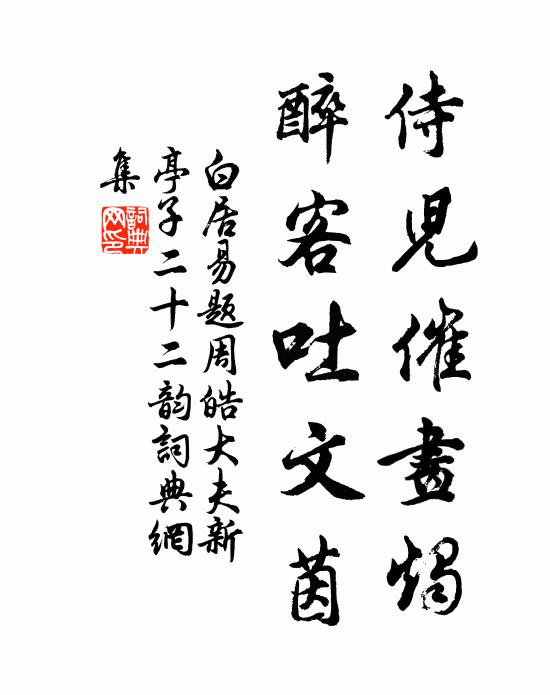 侍児催畫燭
醉客吐文茵
白居易題周皓大夫新
亭子二十二韵詞典網
集
詞典网印